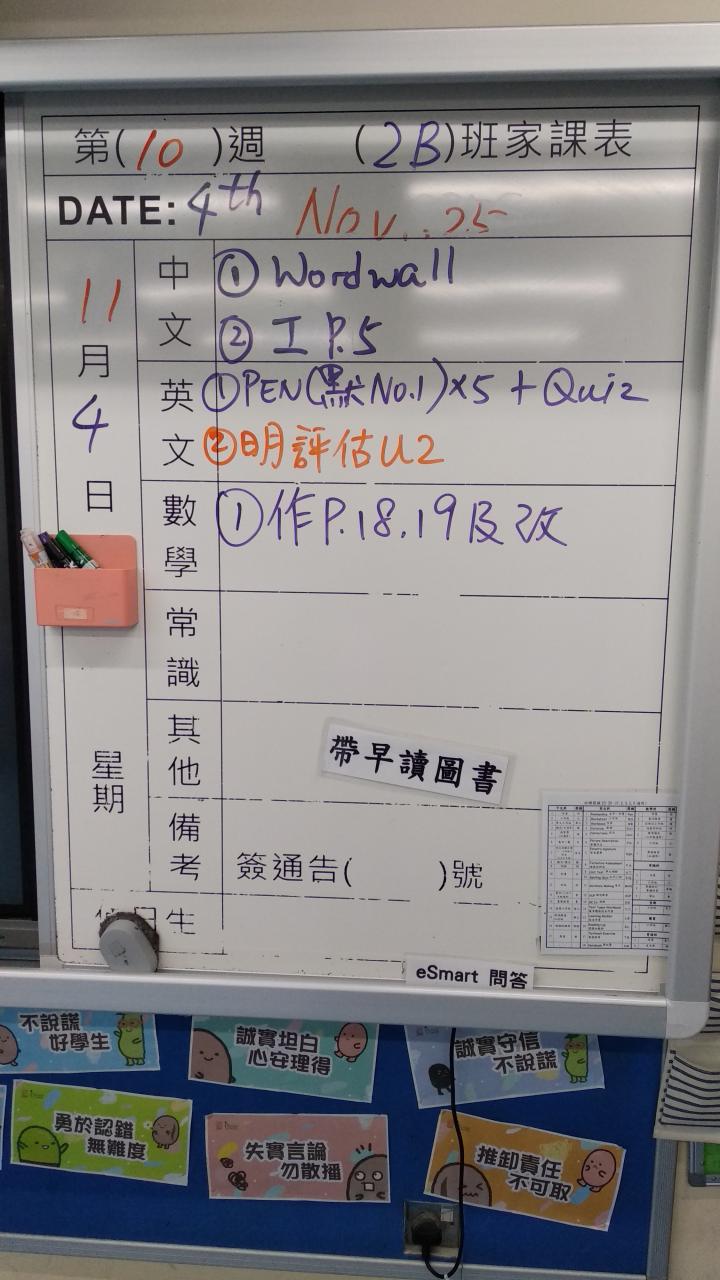 第(10)週 (2B)班家課表
DATE: 4th Nov..25
11月4日
星期
中文
① Wordwall
② 工 P.5
英文
① PEN(默No.1)×5 + Quiz
② 明評估U2
數學
① 作P.18.19及改
常識
其他
帶早讀圖書
備考
簽通告( )號
日生
eSmart 問答
不說謊
好學生
誠實坦白
心安理得
誠實守信
不說謊
勇於認錯
無難度
失實言論
勿散播
推卸責任
不可取